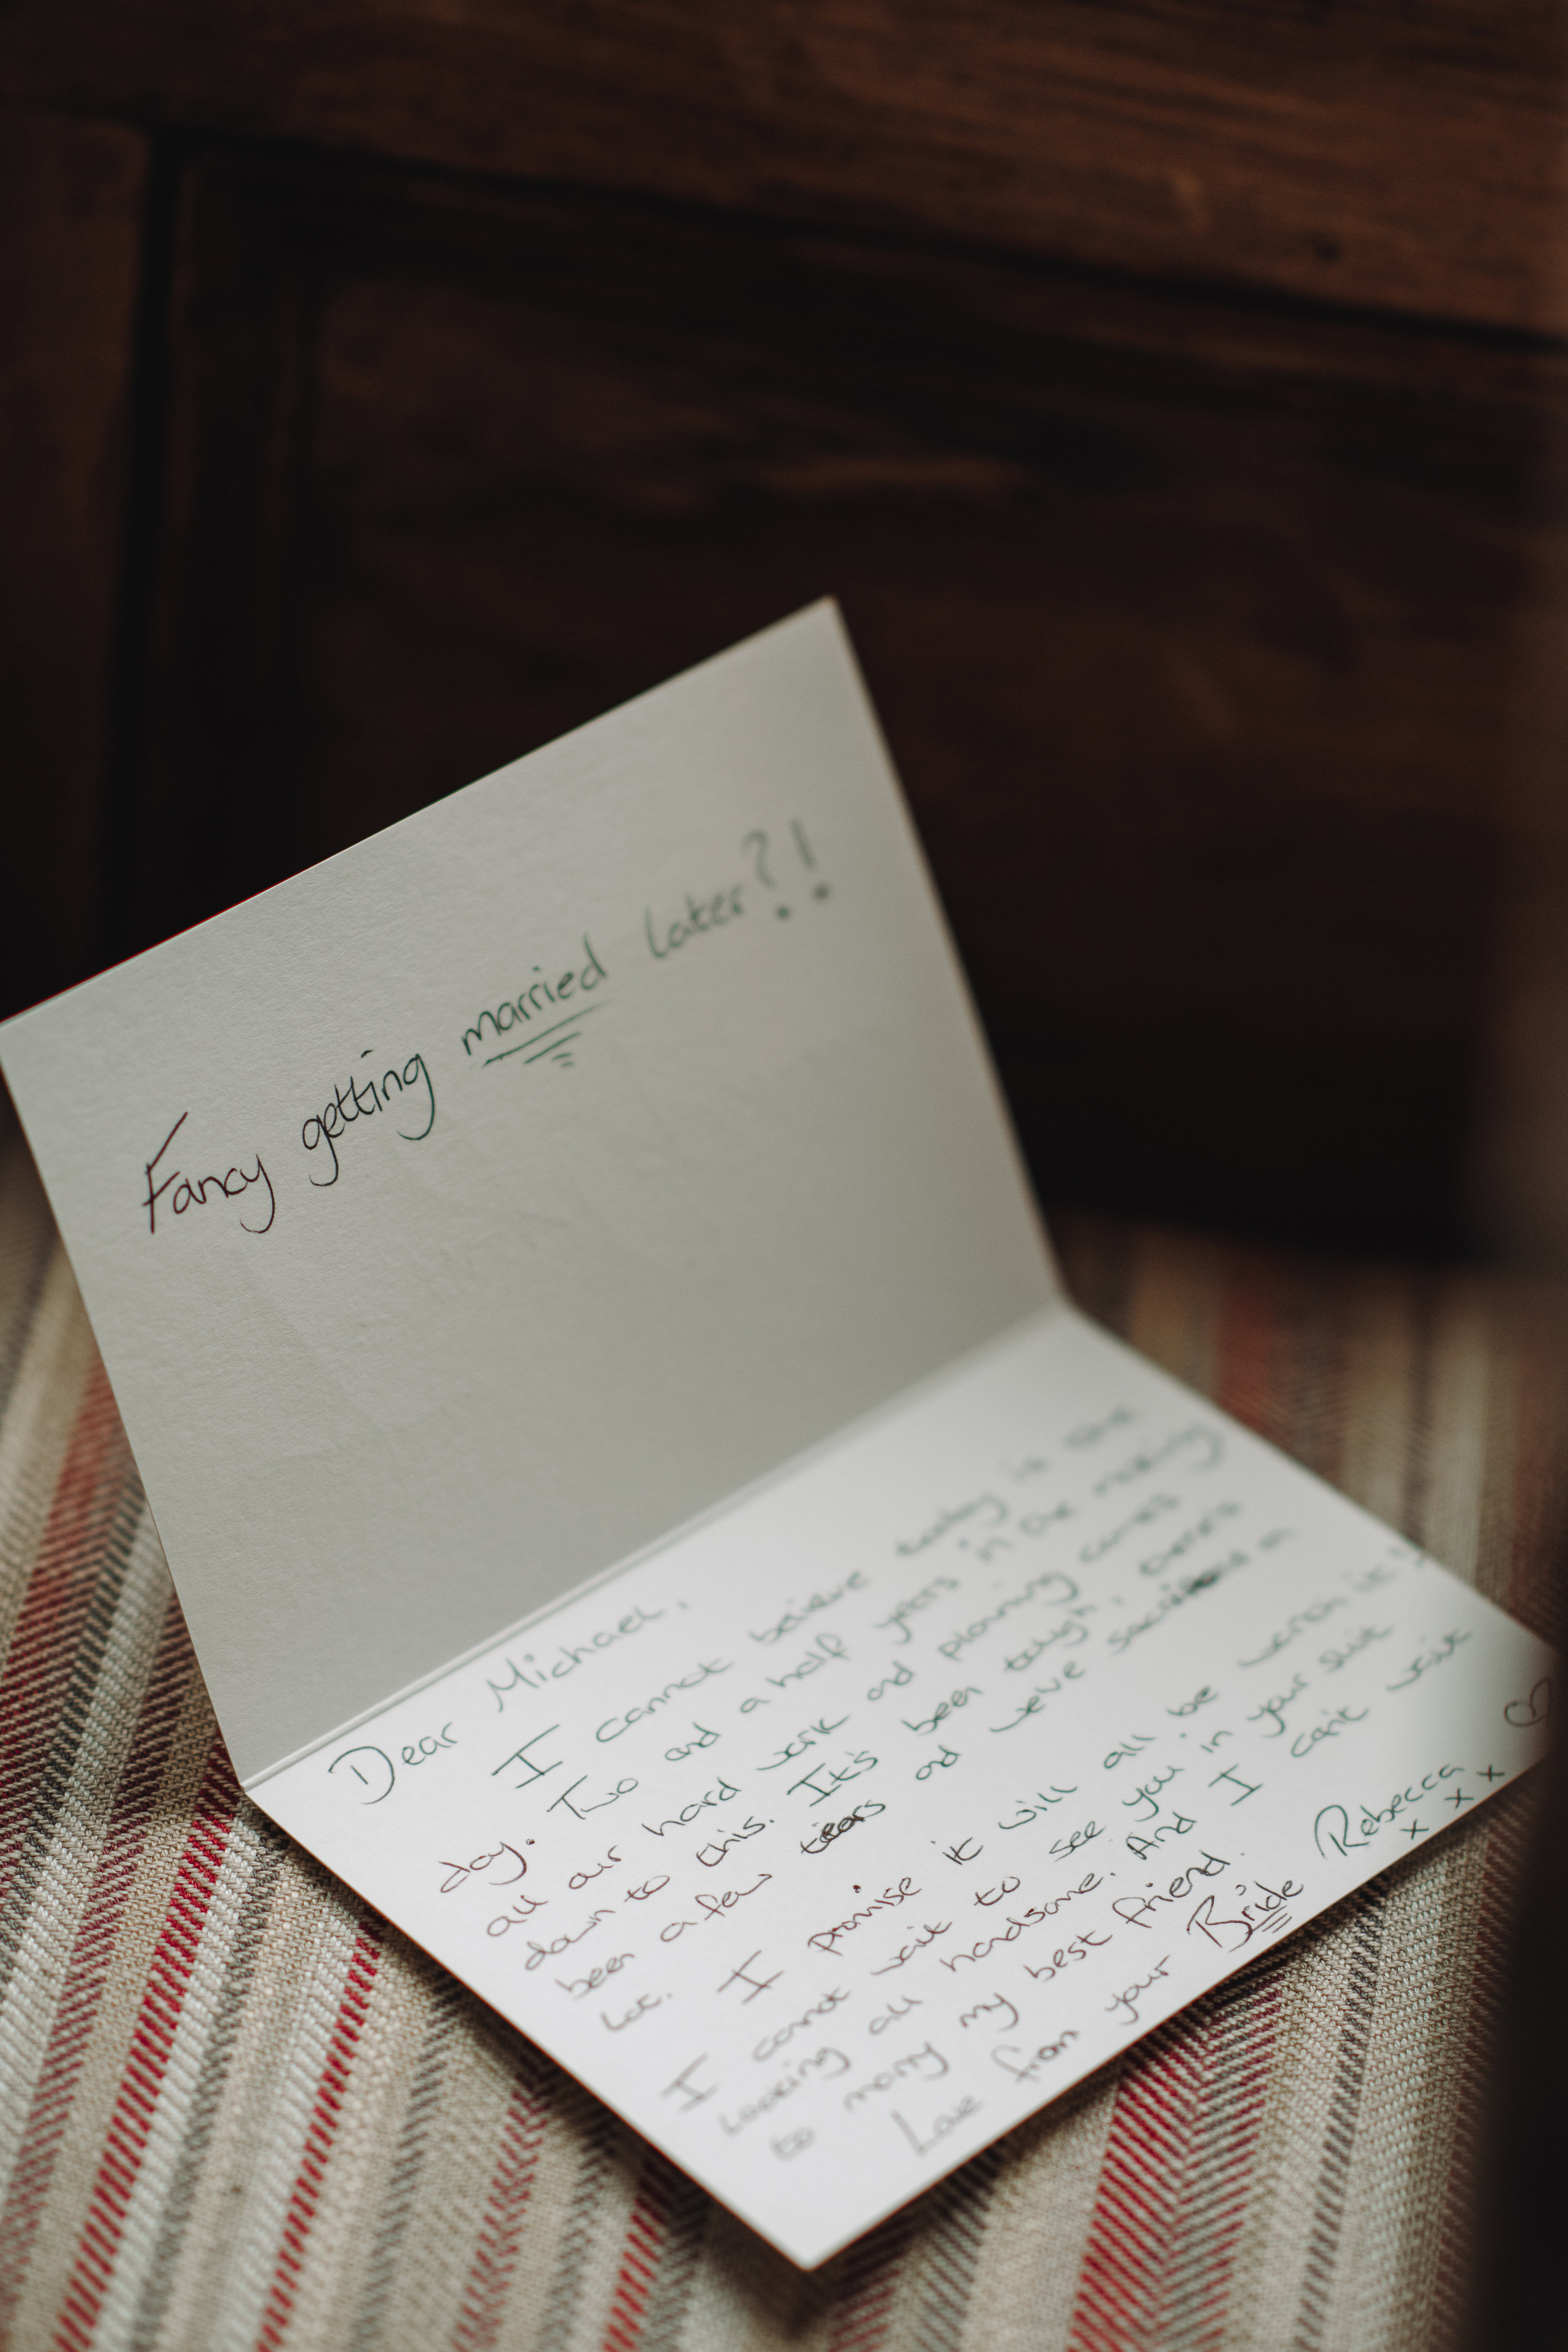 Fancy getting married later?!
Dear Michael,
I cannot believe today is the
day. Two and a half years in the making
all our hard work and planning comes
down to this. It's been tough, there's
been a few tears and we've sacrificed a
lot.
I promise it will all be worth it!!
I cannot wait to see you in your suit
looking all handsome. And I can't wait
to marry my best friend.
Love from your Bride Rebecca
x x x